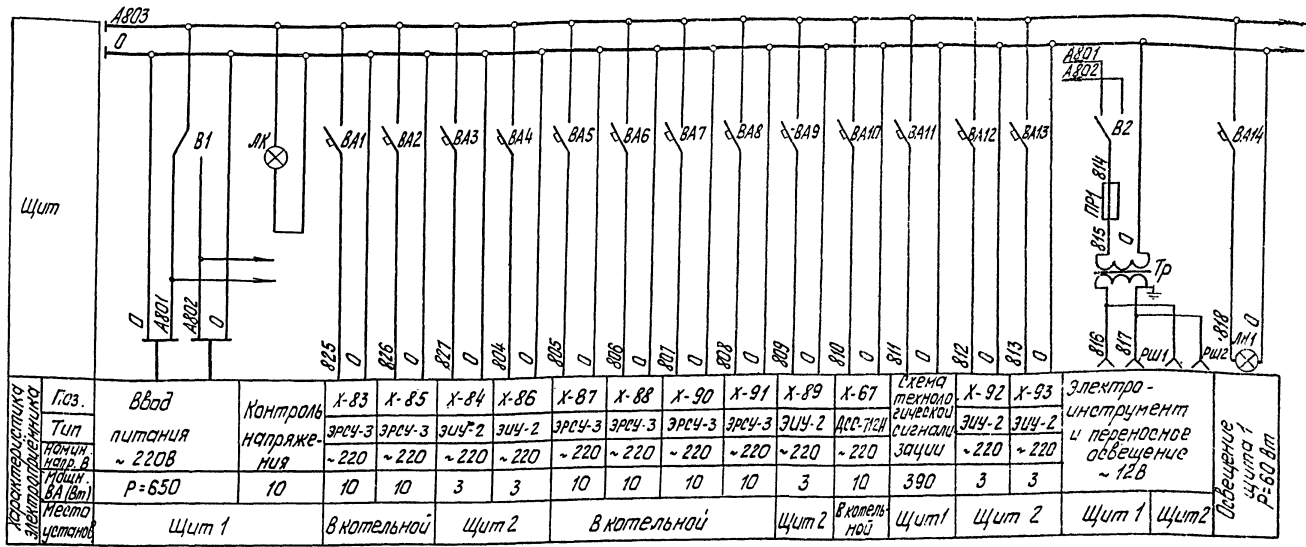 А803
0
Щит
В1
ЛК
ВА1
ВА2
ВА3
ВА4
ВА5
ВА6
ВА7
ВА8
ВА9
ВА10
ВА11
ВА12
ВА13
А801
А802
В2
814
ПР1
815
0
Тр
ВА14
0
А801
А802
0
825
0
826
0
827
0
804
0
805
0
806
0
807
0
808
0
809
0
810
0
811
0
812
0
813
0
816
817
РШ1
РШ2
818
ЛН1
0
Характеристика электроприёмника
Поз.
Ввод питания ~ 220В
Контроль напряже-ния
Х-83
Х-85
Х-84
Х-86
Х-87
Х-88
Х-90
Х-91
Х-89
Х-67
Схема техноло гической сигнали зации
Х-92
Х-93
Электро-инструмент и переносное освещение ~ 12В
Освещение щита 1 Р=60 Вт
Тип
ЭРСУ-3
ЭРСУ-3
ЭИУ-2
ЭИУ-2
ЭРСУ-3
ЭРСУ-3
ЭРСУ-3
ЭРСУ-3
ЭИУ-2
ЭИУ-2
ЭИУ-2
Номин. напр. В
~ 220
~ 220
~ 220
~ 220
~ 220
~ 220
~ 220
~ 220
~ 220
~ 220
~ 220
~ 220
Мощн. ВА (Вт)
Р=650
10
10
10
3
3
10
10
10
10
3
10
390
3
3
Место установ
Щит 1
В котельной
Щит 2
В котельной
Щит 2
В котель-ной
Щит 1
Щит 2
Щит 1
Щит 2